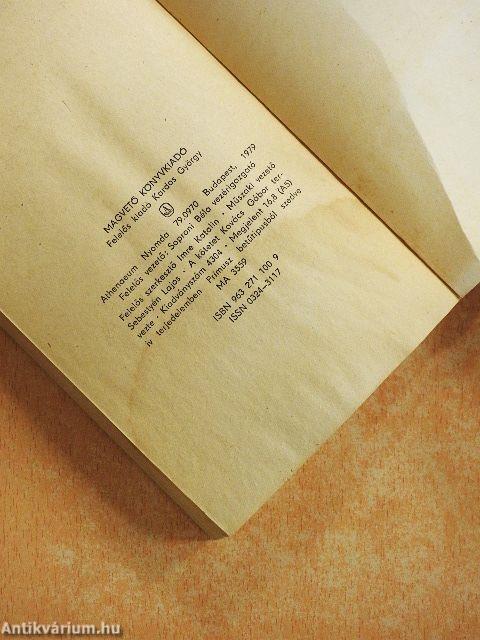 MAGVETŐ KÖNYVKIADÓ
Felelős kiadó Kardos György
Athenaeum Nyomda 79.0970 Budapest, 1979
Felelős vezető: Soproni Béla vezérigazgató
Felelős szerkesztő Imre Katalin · Műszaki vezető
Sebestyén Lajos · A kötetet Kovács Gábor ter-
vezte · Kiadványszám 4304 · Megjelent 16,8 (A5)
ív terjedelemben Prímusz betűtípusból szedve
MA 3559
ISBN 963 271 100 9
ISSN 0324-3117
Antikvárium.hu